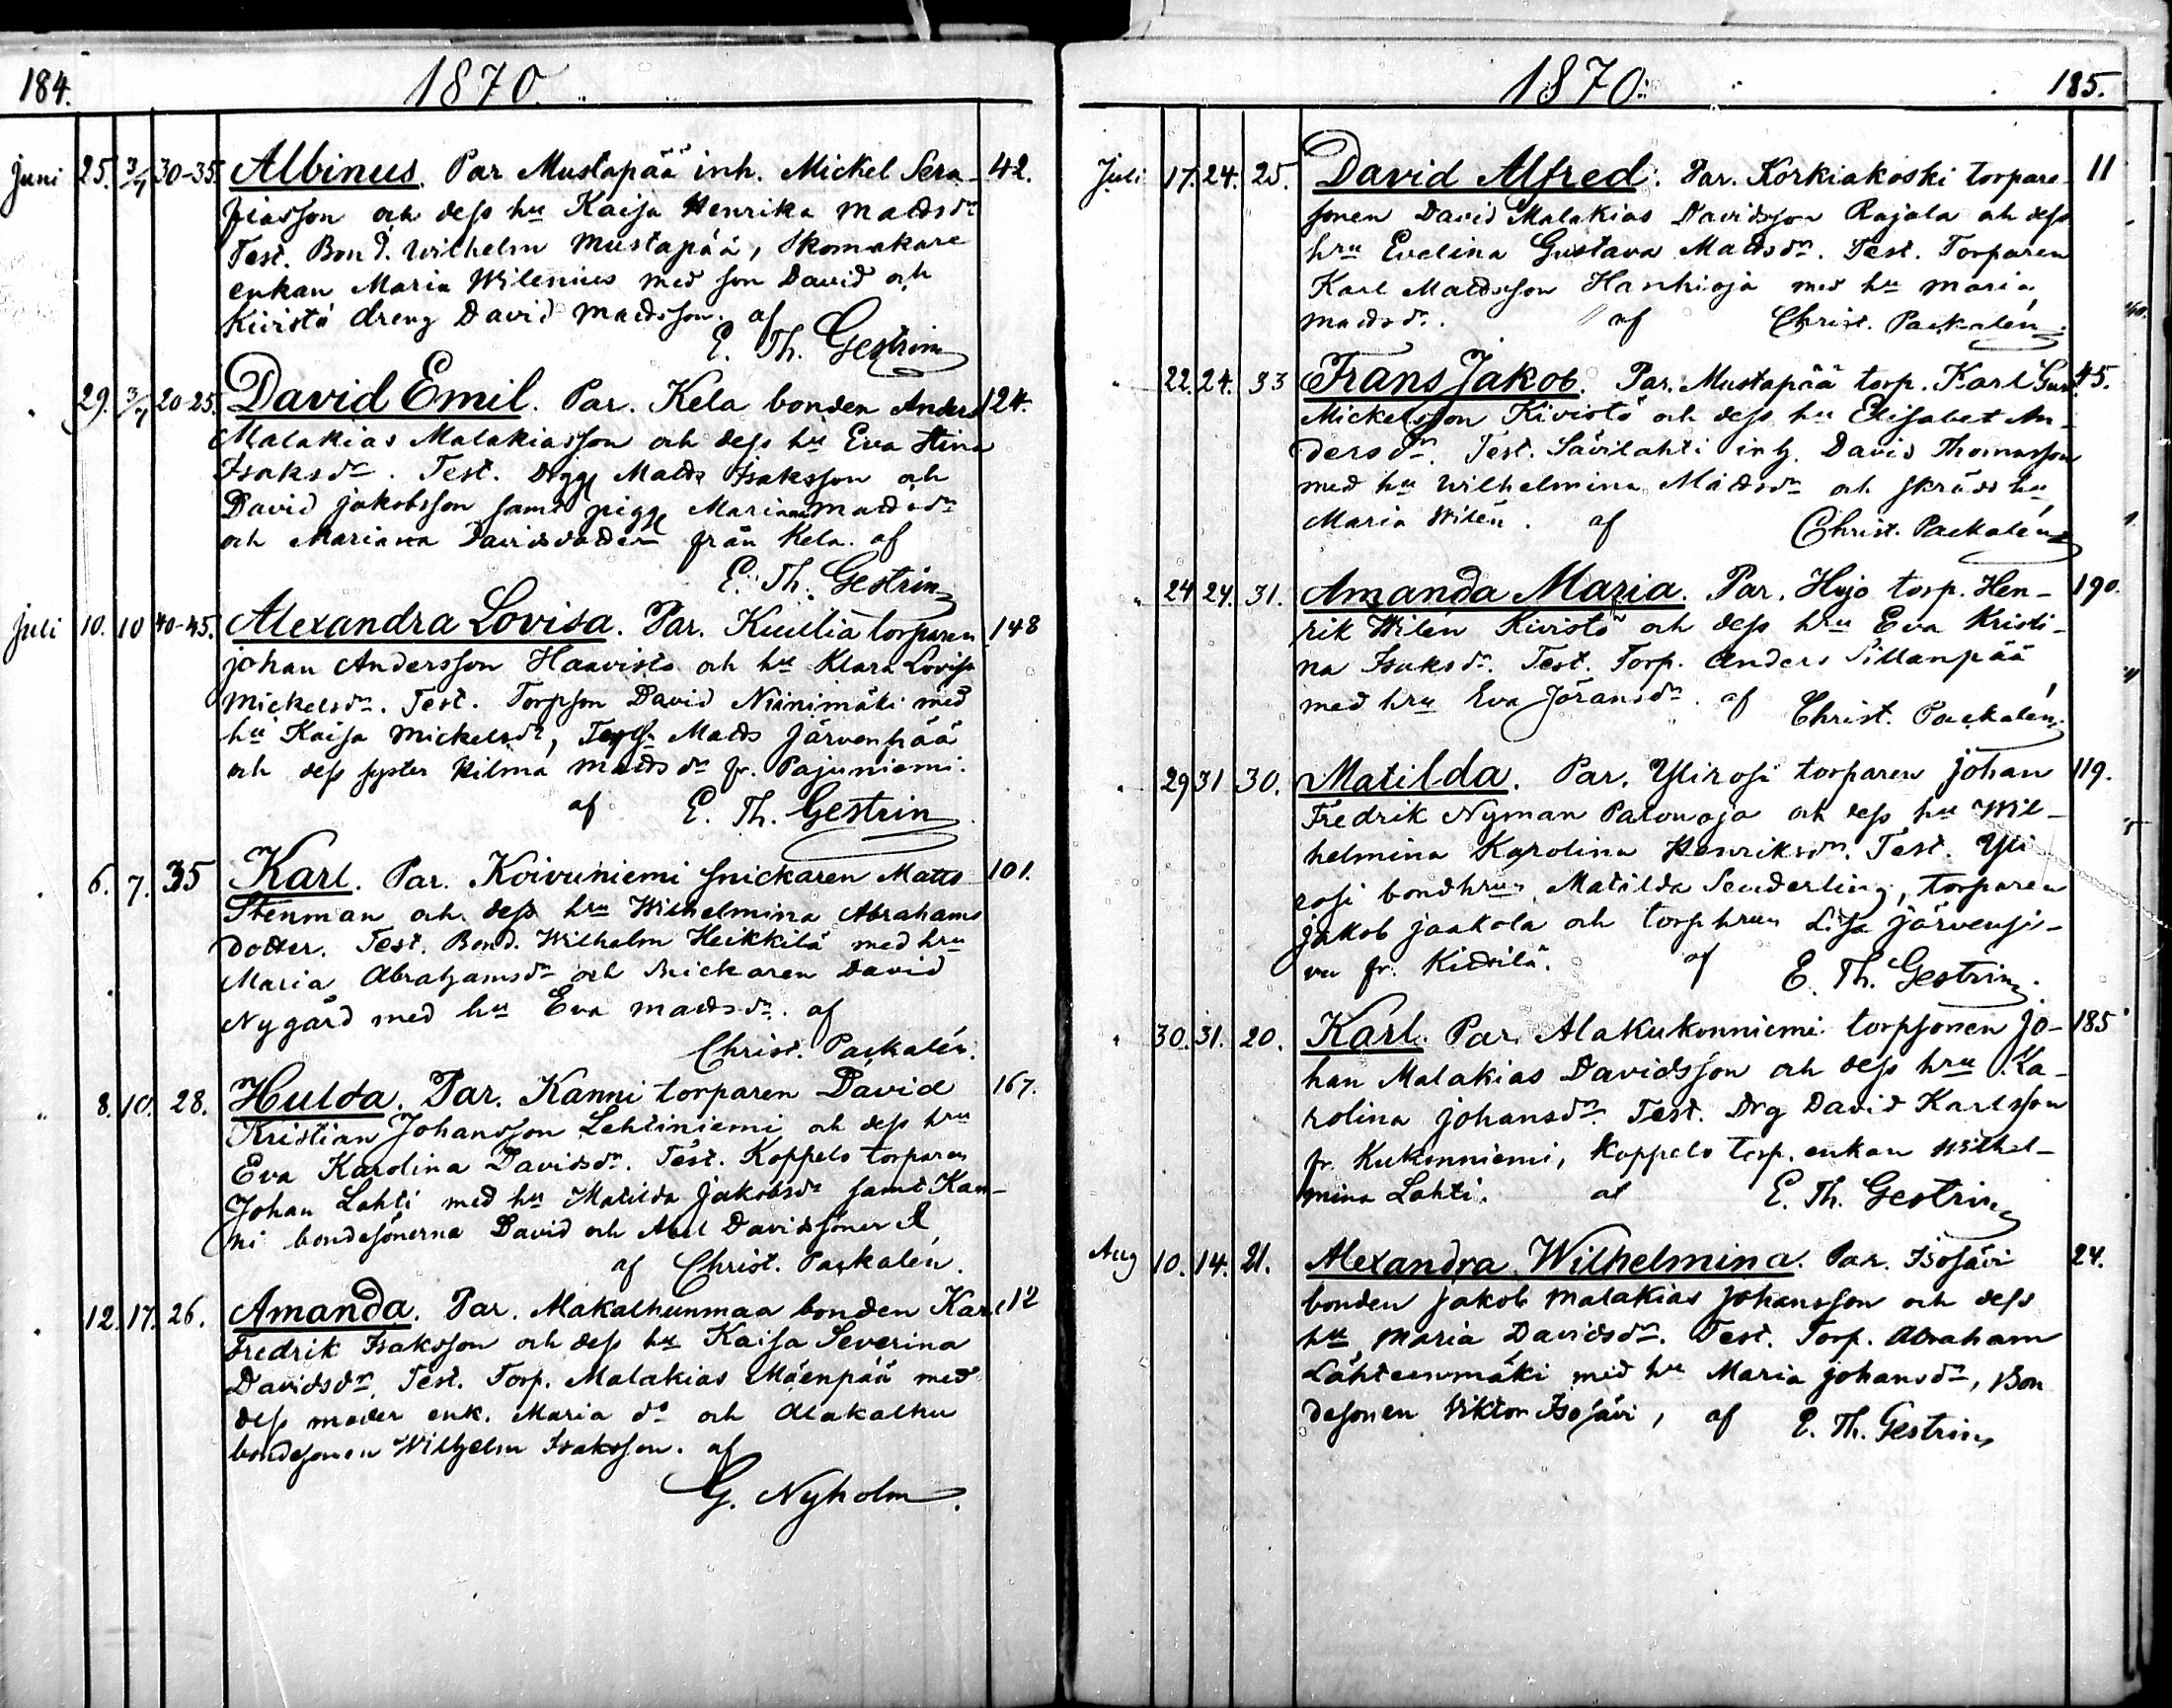 184.
1870.
Juni 25. 3/7 30-35. Albinus. Par Mustapää inh. Mickel Sera- 42.
fiasson och dess hu Kaisa Henrika Mattsdr
Test. Bond. Wilhelm Mustapää, Skomakare
enkan Maria Wilenius med son David och
Kivistö dreng David Mattsson. af
E. Th. Gestrin
" 29. 3/7 20-25. David Emil. Par. Kela bonden Anders 124.
Malakias Malakiasson och dess hu Eva Stina
Isaksdr. Test. Drgg Matts Isaksson och
David Jakobsson samt pigg Mariana Mattsdr
och Mariana Davidsdotter från Kela. af
E. Th. Gestrin
Juli 10. 10 40-45. Alexandra Lovisa. Par. Kuulia torparen 148
Johan Andersson Haavisto och hu Klara Lovisa
Mickelsdr. Test. Torpson David Niinimäki med
hu Kaisa Mickelsdr, Matts Järvenpää
och dess syster Wilma Mattsdr fr. Pajuniemi.
af E. Th. Gestrin
" 6. 7. 35 Karl. Par. Koivuniemi snickaren Matts 101.
Stenman och dess hru Wilhelmina Abrahams
dotter. Test. Bond. Wilhelm Heikkilä med hru
Maria Abrahamsdr och snickaren David
Nygård med hu Eva Mattsdr. af
Christ. Packalén.
" 8. 10. 28. Hulda. Par. Kanni torparen David 167.
Kristian Johansson Lehtiniemi och dess hru
Eva Karolina Davidsdr. Test. Koppelo torparen
Johan Lahti med hu Matilda Jakobsdr samt Kan-
ni bondesönerna David och Axel Davidssöner
af Christ. Packalén.
" 12. 17. 26. Amanda. Par. Makalhunmaa bonden Karl 12
Fredrik Isaksson och dess hu Kaisa Severina
Davidsdr. Test. Torp. Malakias Mäenpää med
dess moder enk. Maria dr och Alakalhu
bondesonen Wilhelm Isaksson. af
G. Nyholm.
1870.
185.
Juli 17. 24. 25. David Alfred. Par. Korkiakoski torpare- 11
sonen David Malakias Davidsson Rajala och dess
hru Evelina Gustava Mattsdr. Test. Torparen
Karl Mattsson Hanhioja med hu Maria
Mattsdr. af Christ. Packalén
" 22. 24. 33 Frans Jakob. Par. Mustapää torp. Karl Gust. 45.
Mickelsson Kivistö och dess hu Elisabet An-
dersdr. Test. Sävilahti inh. David Thomasson
med hu Wilhelmina Mattsdr och skrädd hu
Maria Wilén. af Christ. Packalén
" 24 24. 31. Amanda Maria. Par. Hujo torp. Hen- 190.
rik Wilén Kivistö och dess hru Eva Kristi-
na Isaksdr. Test. Torp. Anders Sillanpää
med hru Eva Jöransdr. af Christ. Packalén
" 29 31 30. Matilda. Par. Ylirosi torparen Johan 119.
Fredrik Nyman Palonoja och dess hru Wil-
helmina Karolina Henriksdr. Test. Yli
rosi bondhrun Matilda Senderling, torparen
Jakob Jaakola och torphrun Lisa Järvensi-
vu fr. af E. Th. Gestrin.
" 30. 31. 20. Karl. Par. Alakukonniemi torpsonen Jo- 185
han Malakias Davidsson och dess hru Ka-
rolina Johansdr. Test. Drg David Karlsson
fr. Kukonniemi, Koppelo torp. enkan Wilhel-
mina Lahti. af E. Th. Gestrin
Aug 10. 14. 21. Alexandra Wilhelmina. Par. Isosävi 24.
bonden Jakob Malakias Johansson och dess
hu Maria Davidsdr. Test. Torp. Abraham
Lähteenmäki med hu Maria Johansdr, Bon
desonen Viktor Isosävi, af E. Th. Gestrin